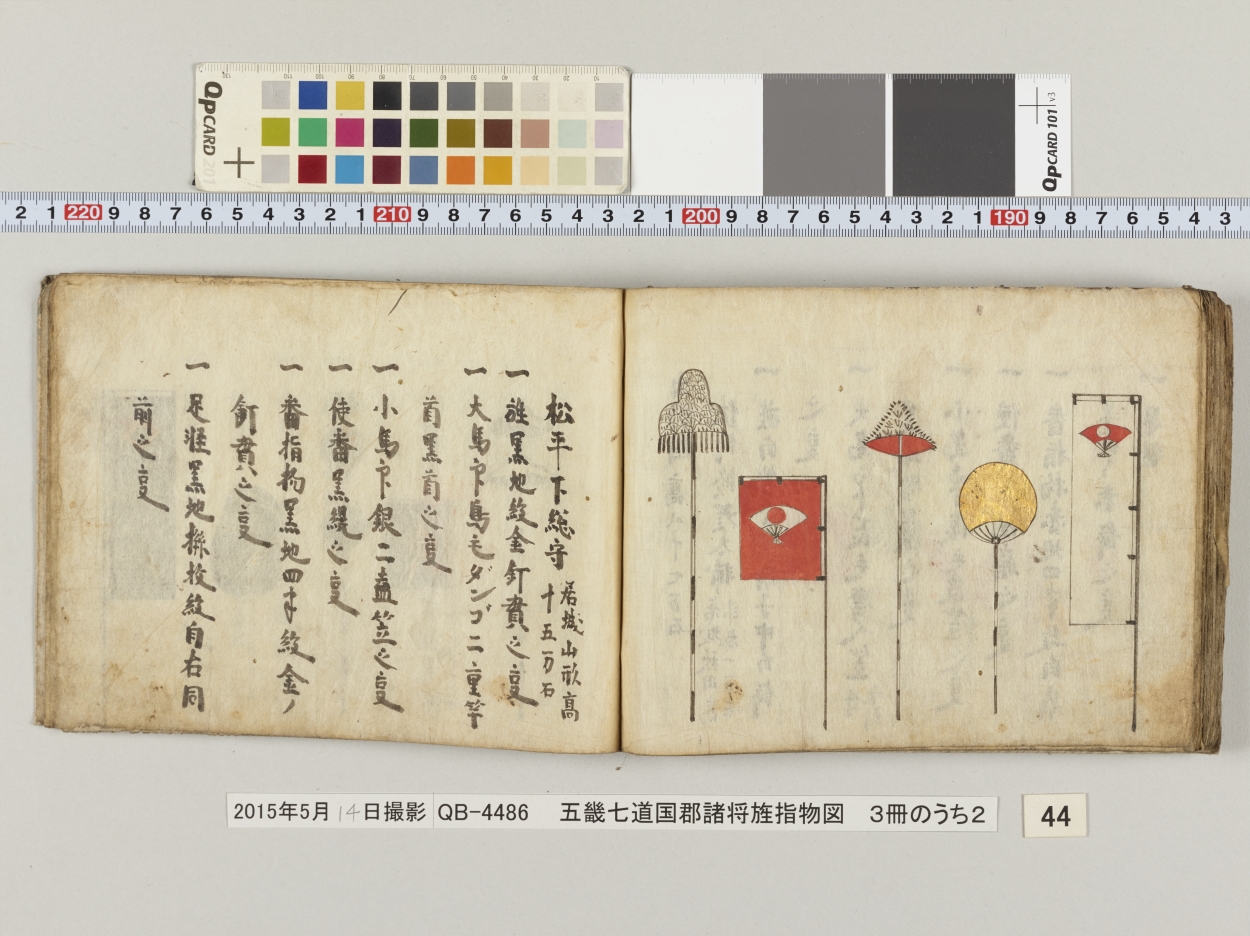 QpCARD 201
QpCARD 101 v3
2 1 220 9 8 7 6 5 4 3 2 1 210 9 8 7 6 5 4 3 2 1 200 9 8 7 6 5 4 3 2 1 190 9 8 7 6 5 4 3
松平下総守
居城山形高
十五万石
一 旌黒地紋金釘貫之変
一 大馬印鳥毛ダンゴ二重竿
首黒首之変
一 小馬印銀二蓋笠之変
一 使番黒縨之変
一 番指物黒地四半紋金ノ
釘貫之変
一 足軽黒地捺枚紋自右同
前之変
2015年5月14日撮影 QB-4486 五畿七道国郡諸将旌指物図 3冊のうち2
44